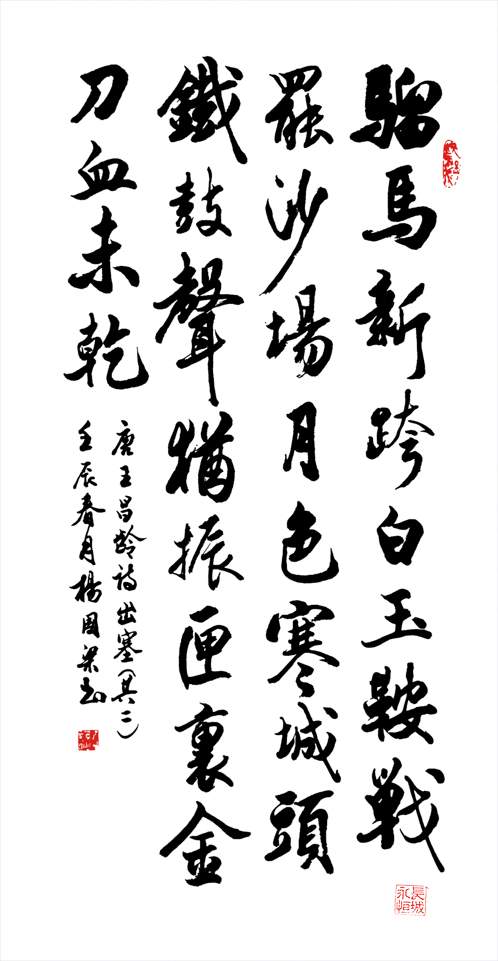 騮馬新跨白玉鞍戰
罷沙場月色寒城頭
鐵鼓聲猶振匣裏金
刀血未乾
唐王昌齡詩出塞(其二)
壬辰春月楊國梁書
長城
永恒